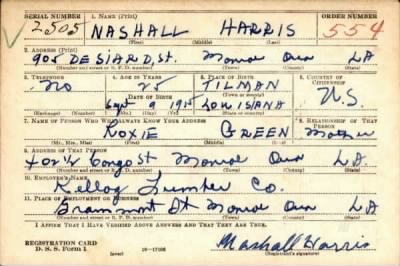 SERIAL NUMBER 1. NAME (Print) ORDER NUMBER
2505 NASHALL HARRIS 554
(First) (Middle) (Last)
2. ADDRESS (Print)
905 DESIARD, St. Monroe Oua LA
(Number and street or R. F. D. number) (Town) (County) (State)
3. TELEPHONE 4. AGE IN YEARS 5. PLACE OF BIRTH 6. COUNTRY OF CITIZENSHIP
no 25 TILMAN
DATE OF BIRTH (Town or county) U.S.
Sept 9 1915 LOUISIANA
(Mo.) (Day) (Yr.) (State or country)
7. NAME OF PERSON WHO WILL ALWAYS KNOW YOUR ADDRESS 8. RELATIONSHIP OF THAT PERSON
ROXIE GREEN Mother
(First) (Middle) (Last)
9. ADDRESS OF THAT PERSON
402½ Congo St Monroe Oua LA.
(Number and street or R. F. D. number) (Town) (County) (State)
10. EMPLOYER'S NAME
Kellog Lumber Co.
11. PLACE OF EMPLOYMENT OR BUSINESS
St Monroe Oua LA
(Number and street or R. F. D. number) (Town) (County) (State)
I AFFIRM THAT I HAVE VERIFIED ABOVE ANSWERS AND THAT THEY ARE TRUE.
REGISTRATION CARD
D. S. S. Form 1 (over) 16—17105 Nashall Harris
(Registrant's signature)